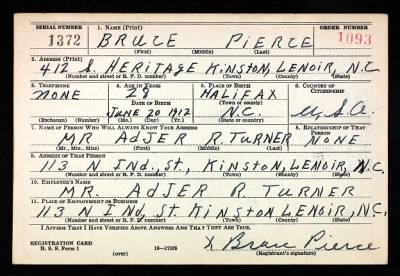 SERIAL NUMBER 1. NAME (Print) ORDER NUMBER
1372 BRUCE PIERCE 1093
(First) (Middle) (Last)
2. ADDRESS (Print)
412 S. HERITAGE KINSTON, LENOIR, N.C.
(Number and street or R. F. D. number) (Town) (County) (State)
3. TELEPHONE 4. AGE IN YEARS 5. PLACE OF BIRTH 6. COUNTRY OF CITIZENSHIP
NONE 28 HALIFAX
DATE OF BIRTH (Town or county)
JUNE 20 1912 N.C. U.S.A.
(Exchange) (Number) (Mo.) (Day) (Yr.) (State or country)
7. NAME OF PERSON WHO WILL ALWAYS KNOW YOUR ADDRESS 8. RELATIONSHIP OF THAT PERSON
MR ADJER R. TURNER NONE
(Mr., Mrs., Miss) (First) (Middle) (Last)
9. ADDRESS OF THAT PERSON
113 N Ind., St., KINSTON, LENOIR, N.C.
(Number and street or R. F. D. number) (Town) (County) (State)
10. EMPLOYER'S NAME
MR. ADJER R TURNER
11. PLACE OF EMPLOYMENT OR BUSINESS
113 N Ind St. KINSTON LENOIR, N.C.
(Number and street or R. F. D. number) (Town) (County) (State)
I AFFIRM THAT I HAVE VERIFIED ABOVE ANSWERS AND THAT THEY ARE TRUE.
REGISTRATION CARD
D. S. S. Form 1 16—17105 X Bruce Pierce
(over) (Registrant's signature)